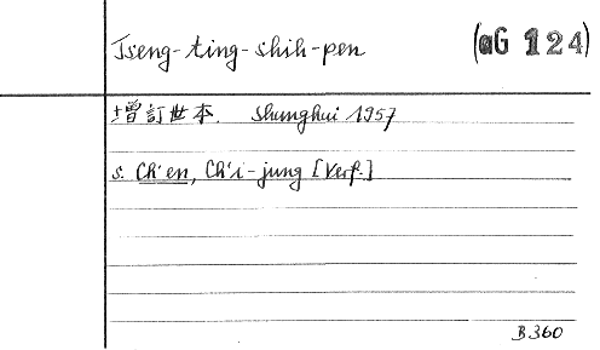 Tseng-ting-shih-pen
(aG 124)
增訂世本. Shanghai 1957
s. Ch'en, Ch'i-jung [Verf.]
B360